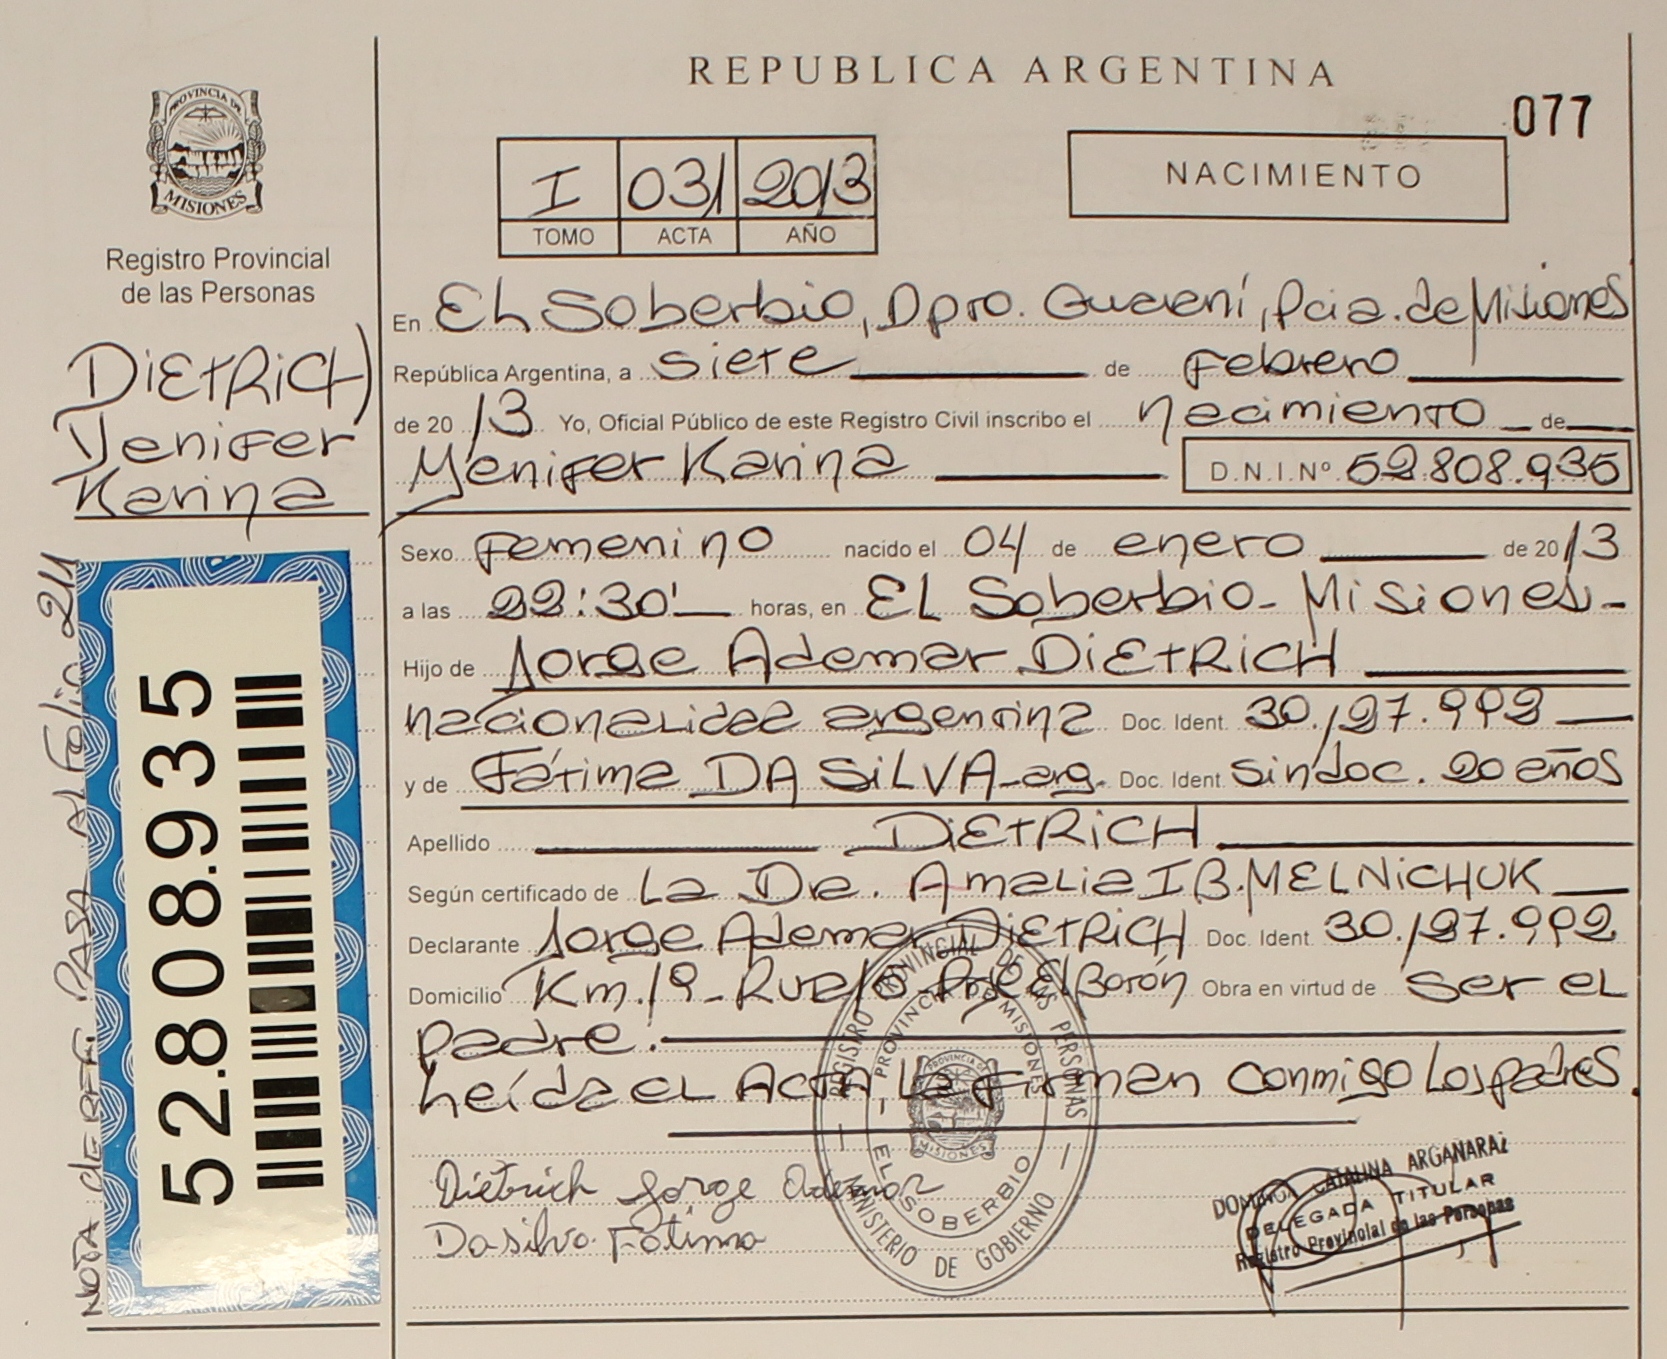 REPUBLICA ARGENTINA
077
PROVINCIA DE
MISIONES
Registro Provincial
de las Personas
I 031 2013
TOMO ACTA AÑO
NACIMIENTO
DIETRICH
Yenifer
Karina
En El Soberbio, Dpto. Guaraní, Pcia. de Misiones
República Argentina, a siete de Febrero
de 2013 Yo, Oficial Público de este Registro Civil inscribo el nacimiento de
Yenifer Karina D.N.I.Nº 52.808.935
Sexo Femenino nacido el 04 de enero de 2013
a las 22:30' horas, en El Soberbio - Misiones -
Hijo de Jorge Ademar DIETRICH
nacionalidad argentina Doc. Ident. 30.127.992
y de Fátima DA SILVA - arg. Doc. Ident. sin doc. 20 años
Apellido DIETRICH
Según certificado de La Dra. Amalia I B. MELNICHUK
Declarante Jorge Ademar DIETRICH Doc. Ident. 30.127.992
Domicilio Km. 19 - Ruta Obra en virtud de ser el
padre.
Leída el ACTA, La Firman conmigo Los padres.
Dietrich Jorge Ademar
Da silva Fátima
REGISTRO PROVINCIAL DE LAS PERSONAS
MINISTERIO DE GOBIERNO
PROVINCIA DE MISIONES
EL SOBERBIO
PROVINCIA DE
MISIONES
CATALINA ARGAÑARAZ
DELEGADA TITULAR
Registro Provincial de las Personas
52.808.935
NOTA dE REF: PASA AL Folio 211